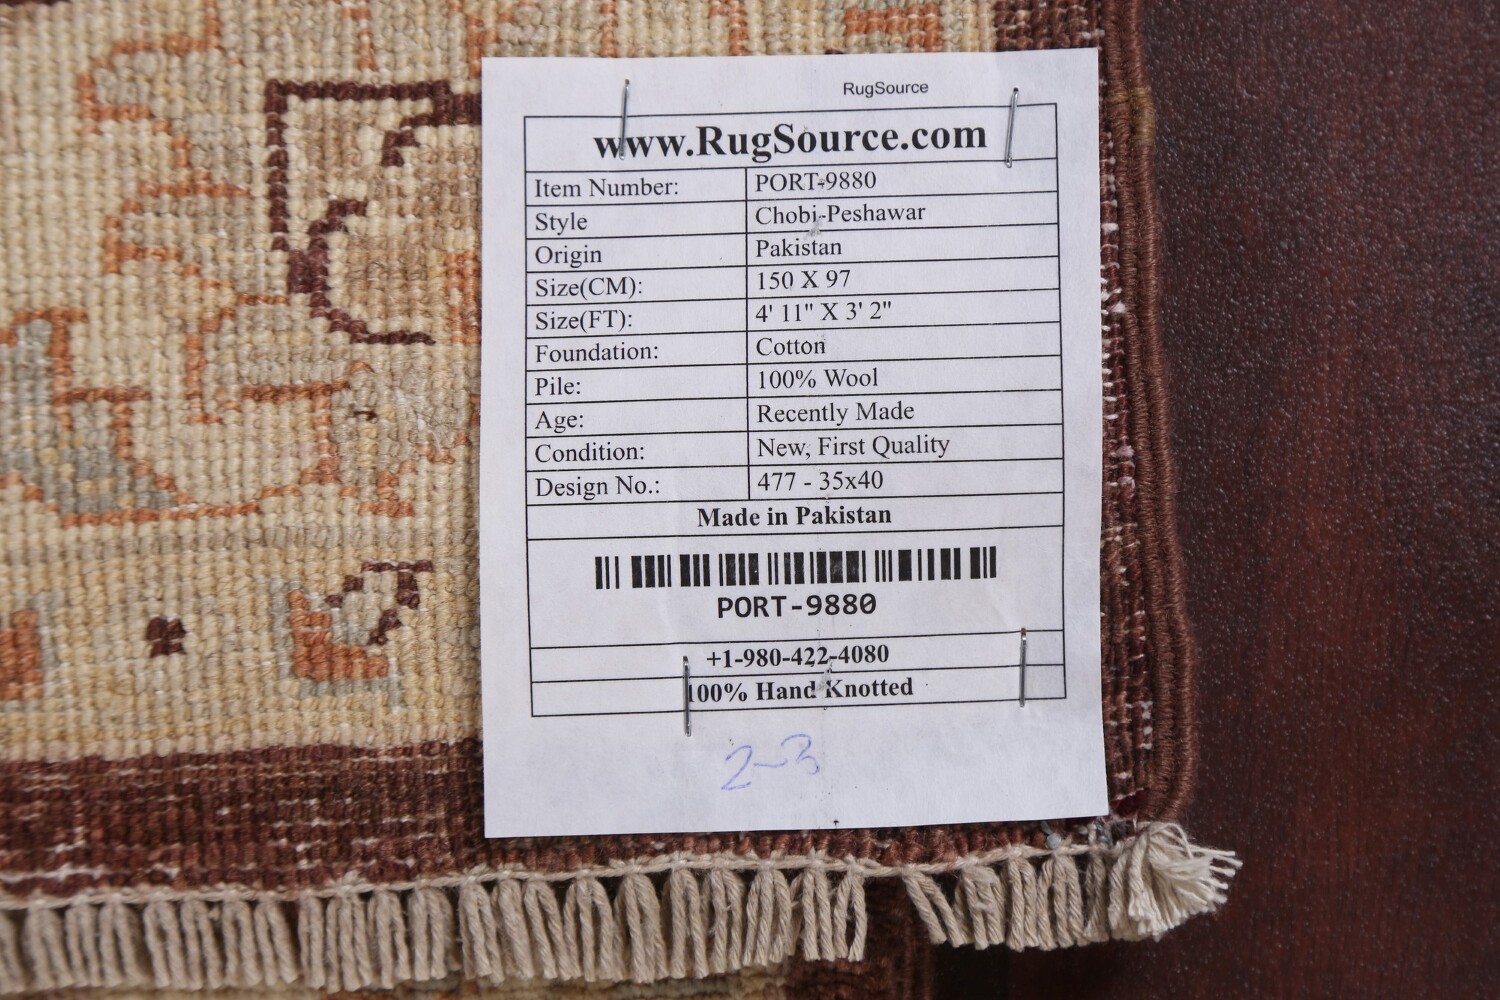 RugSource
www.RugSource.com
Item Number: PORT-9880
Style Chobi-Peshawar
Origin Pakistan
Size(CM): 150 X 97
Size(FT): 4' 11" X 3' 2"
Foundation: Cotton
Pile: 100% Wool
Age: Recently Made
Condition: New, First Quality
Design No.: 477 - 35x40
Made in Pakistan
PORT-9880
+1-980-422-4080
100% Hand Knotted
2-3